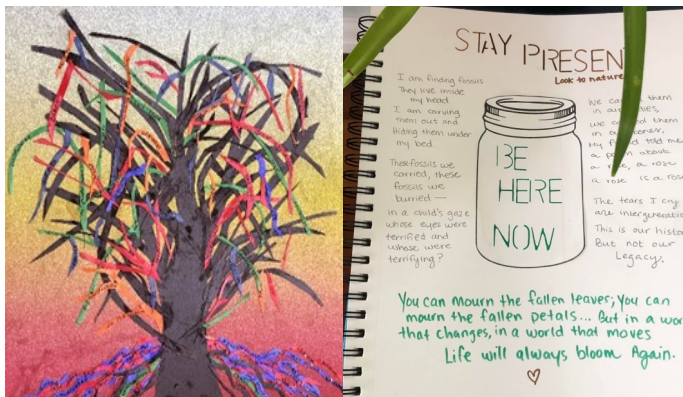 STAY PRESEN
Look to nature
I am finding fossils
They live inside
my head
I am carving
them out and
Hiding them under
my bed.
These fossils we
carried, these
fossils we
burried —
in a child's gaze
whose eyes were
terrified and
whose were
terrifying?
BE
HERE
NOW
We them
in
we them
in
My told me
a about
a rose
a rose is a rose
The tears I cry
are intergeneratio
This is our histo
But not our
Legacy.
You can mourn the fallen leaves; You can
mourn the fallen petals... But in a wor
that changes, in a world that moves
Life will always bloom Again.